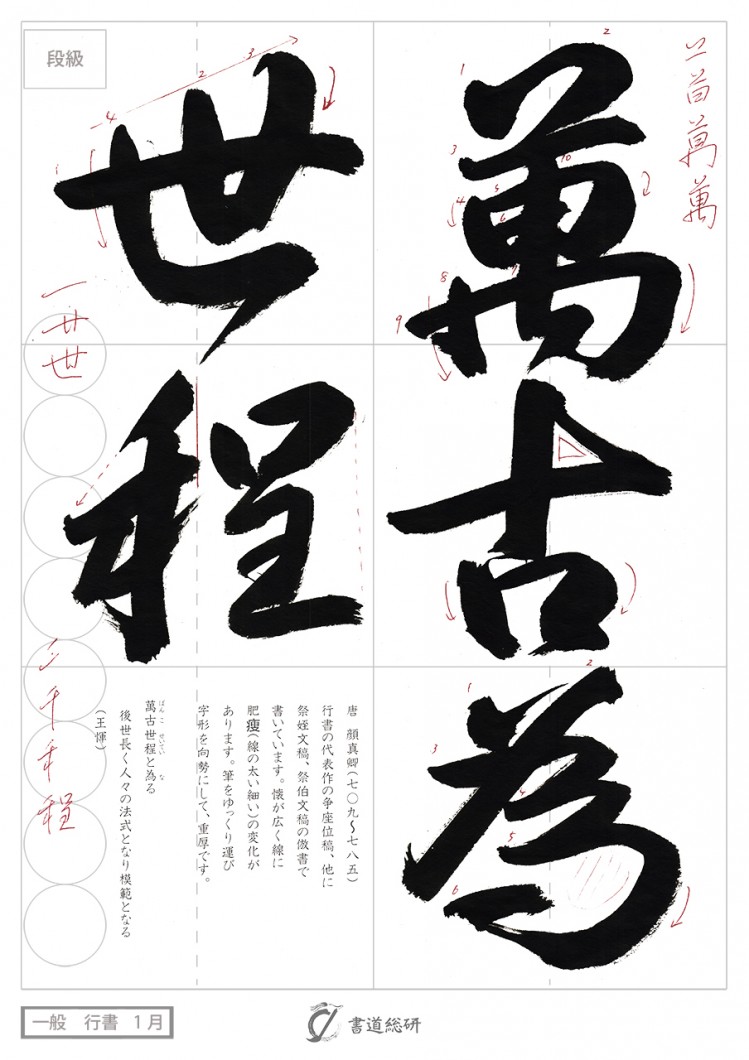 萬古為
世程
段級
唐　顔真卿(七〇九〜七八五)
行書の代表作の争座位稿、他に
祭姪文稿、祭伯文稿の倣書で
書いています。懐が広く線に
肥痩(線の太い細い)の変化が
あります。筆をゆっくり運び
字形を向勢にして、重厚です。
萬古世程と為る
ばんこせいていな
後世長く人々の法式となり模範となる
(王惲)
一般　行書　1月
書道総研